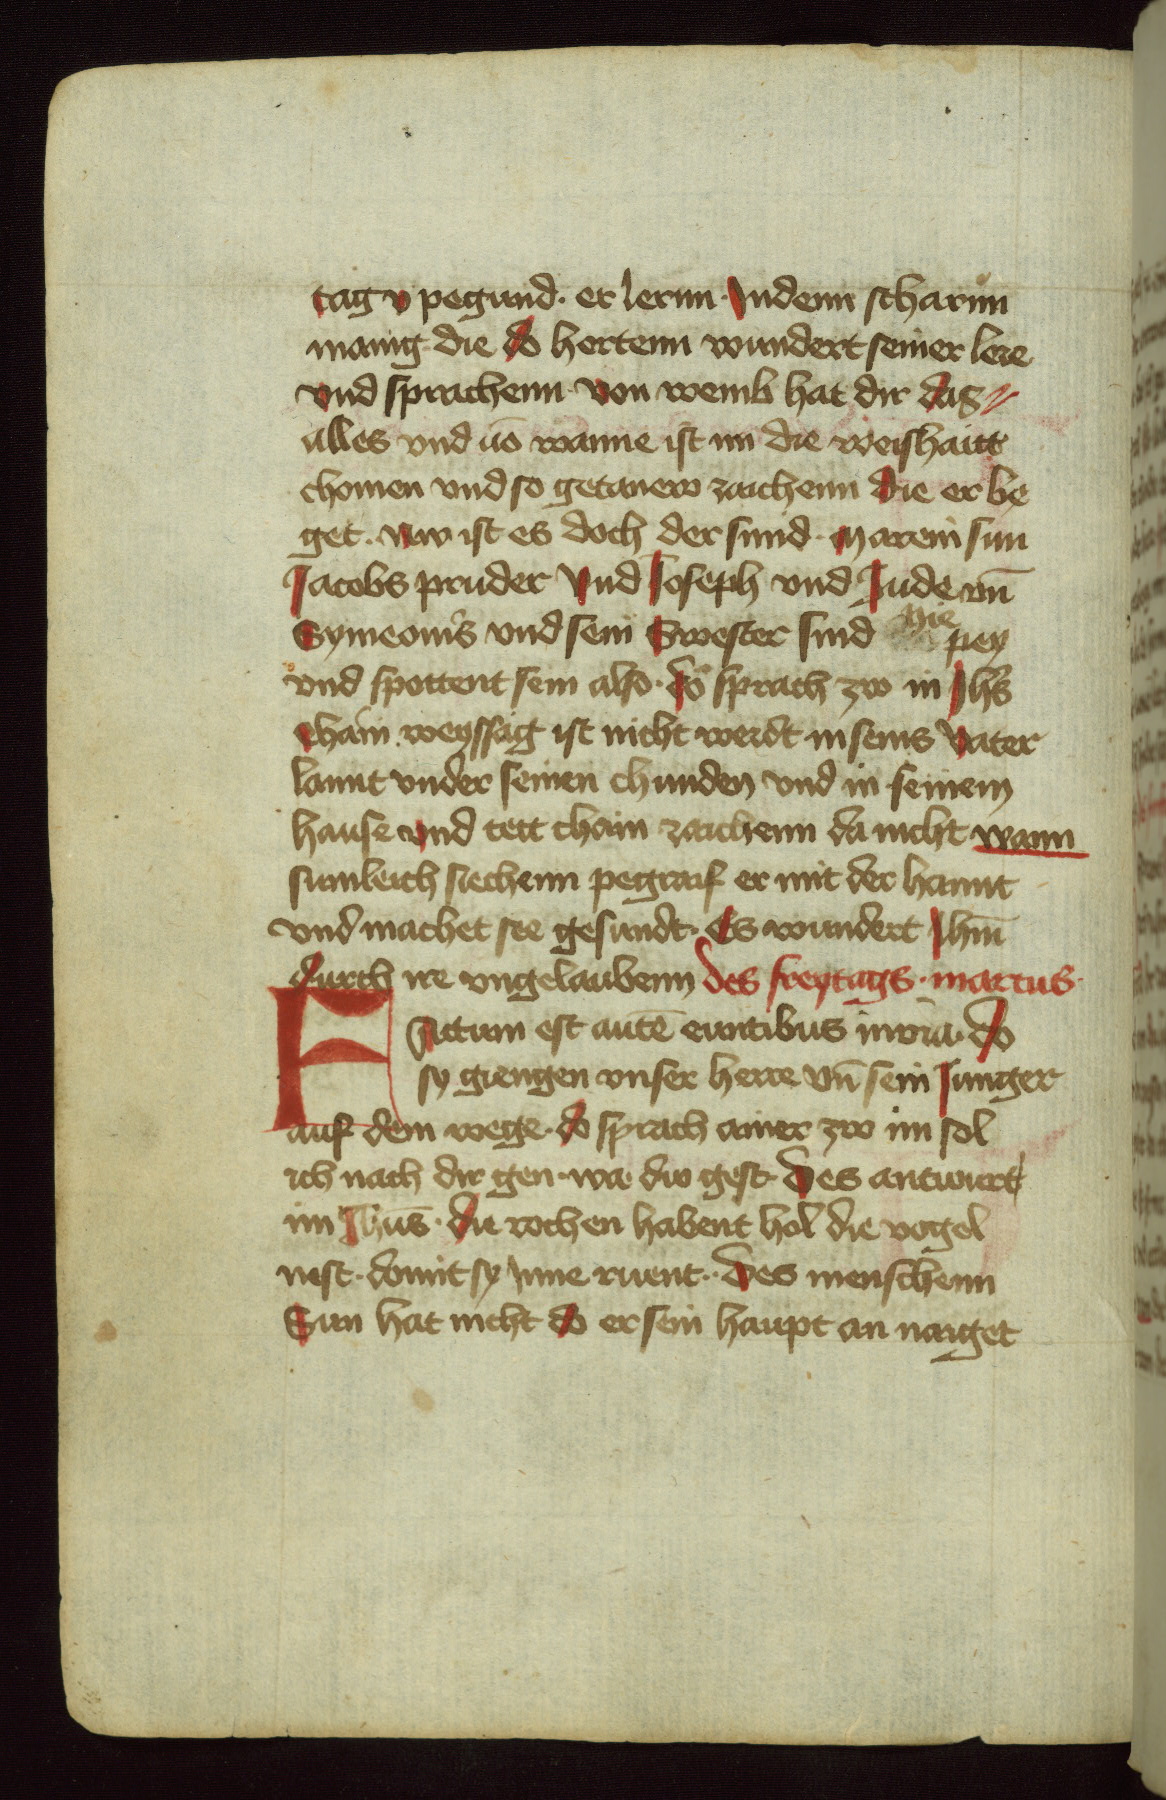 tag v pegund. er lernn. Indenn scharnn
manig. die do hortenn wundert seiner lere
vnd sprachenn. von wemb hat dir das
alles vnd uō wanne ist im die weishaitt
chomen vnd so getanew zaichenn die er be
get. Nw ist es doch der smid. Marein sun
Jacobs pruder Vnd Joseph vnd Jude vn̄
Symeonis vnd sein Swester sind hie pey
vnd spottent sein also. do sprach zw in Jhs̄
chain weyssag ist nicht werdt in seins Vater
lannt vnder seinen chunden vnd in seinem
hause vnd tett chain zaichenn da nicht wann
sumleich siechenn pegraif er mit der hannt
vnd machet sie gesundt. Es wundert Jhm̄
durch ire vngelaubenn Des freytags. marcus.
Factum est autē euntibus in via. do
sy giengen vnser herre vn̄ sein Junger
auf dem wege. do sprach ainer zw im sol
ich nach dir gen. wa dw gest. Des antwurt
im Jhūs. die vochen habent hol die vogel
nest. domit sy Inne ruent. Des menschenn
Sun hat nicht do er sein haupt an naiget